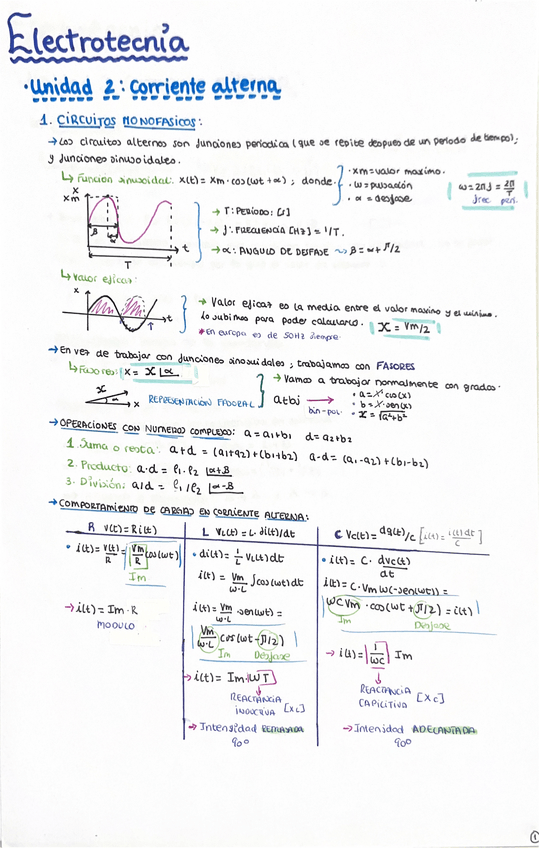 Electrotecnía
· Unidad 2: Corriente alterna
1. CIRCUITOS MONOFASICOS:
→ Los circuitos alternos son funciones periodica (que se repite despues de un periodo de tiempo);
y funciones sinusoidales.
↳ Función sinusoidal: x(t) = Xm · cos(ωt + α) ; donde
· xm = valor maximo.
· ω = pulsación
· α = desfase
ω = 2πf = 2π/T
frec. peri.
x
xm
β
α
t
T
→ T: PERÍODO: [s]
→ f: FRECUENCIA [HZ] = 1/T.
→ α: ANGULO DE DESFASE ~> β = α + π/2
↳ Valor eficaz:
x
t
→ Valor eficaz es la media entre el valor maximo y el minimo.
lo subimos para poder calcularlo.
X = Vm/2
* en europa es de 50HZ siempre
→ En vez de trabajar con funciones sinusoidales, trabajamos con FASORES
↳ Fasores: x = X|α
x
α
x
REPRESENTACIÓN FASORIAL
→ Vamos a trabajar normalmente con grados.
a+bj → bin-pol.
· a = X · cos(x)
· b = X · sen(x)
· X = √a²+b²
→ OPERACIONES CON NUMEROS COMPLEJOS: a = a1+b1 d = a2+b2
1. Suma o resta: a+d = (a1+a2)+(b1+b2) a-d = (a1-a2)+(b1-b2)
2. Producto: a·d = ρ1·ρ2 |α+β
3. División: a/d = ρ1/ρ2 |α-β
→ COMPORTAMIENTO DE CARGAS EN CORRIENTE ALTERNA:
R V(t) = R i(t)
· i(t) = V(t)/R = Vm/R cos(ωt)
Im
→ i(t) = Im · R
MODULO
L VL(t) = L · di(t)/dt
· di(t) = 1/L VL(t) dt
i(t) = Vm/ω·L ∫cos(ωt)dt
i(t) = Vm/ω·L sen(ωt) =
Vm/ω·L cos(ωt - π/2)
Im Desfase
→ i(t) = Im · WT
REACTANCIA
INDUCTIVA [XL]
→ Intensidad RETRASADA
90º
C Vc(t) = dq(t)/c [i(t) = i(t)dt/C]
· i(t) = C · dvc(t)/dt
i(t) = C · Vm ω(-sen(ωt)) =
WCVm · cos(ωt + π/2) = i(t)
Im Desfase
→ i(t) = 1/ωC Im
REACTANCIA
CAPICITIVA [Xc]
→ Intenidad ADELANTADA
90º
1